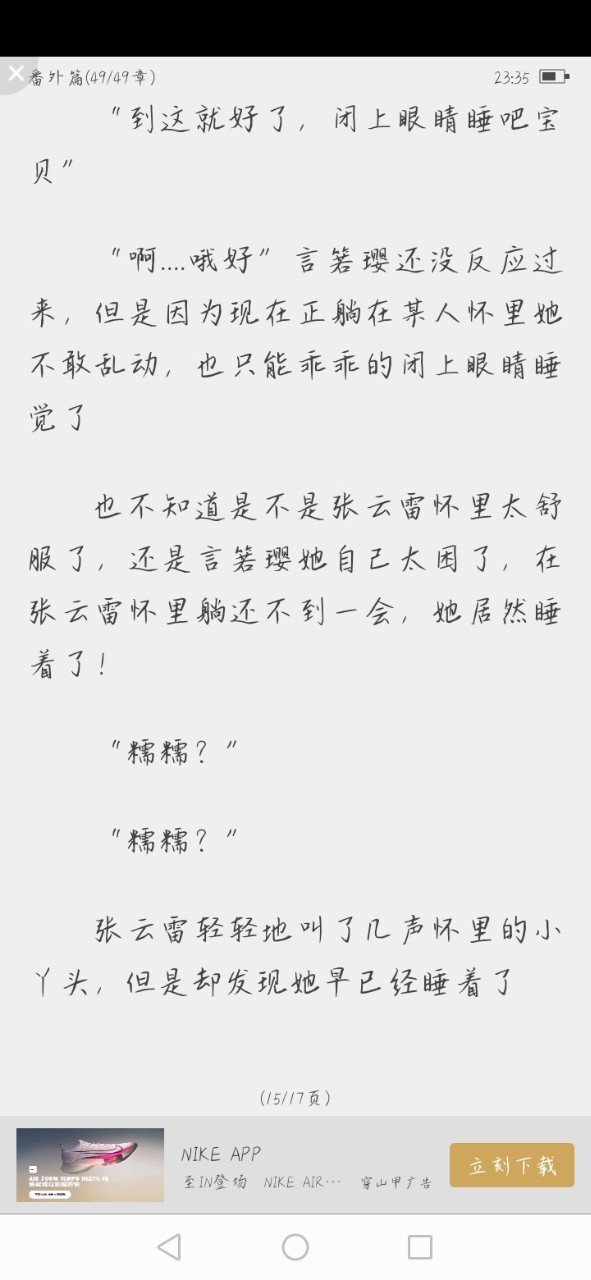 番外篇(49/49章)
23:35
“到这就好了，闭上眼睛睡吧宝
贝”
“啊....哦好”言箬璎还没反应过
来，但是因为现在正躺在某人怀里她
不敢乱动，也只能乖乖的闭上眼睛睡
觉了
也不知道是不是张云雷怀里太舒
服了，还是言箬璎她自己太困了，在
张云雷怀里躺还不到一会，她居然睡
着了！
“糯糯？”
“糯糯？”
张云雷轻轻地叫了几声怀里的小
丫头，但是却发现她早已经睡着了
(15/17页)
NIKE APP
至IN登场 NIKE AIR… 穿山甲广告
立刻下载
AIR ZOOM TEMPO NEXT% FK